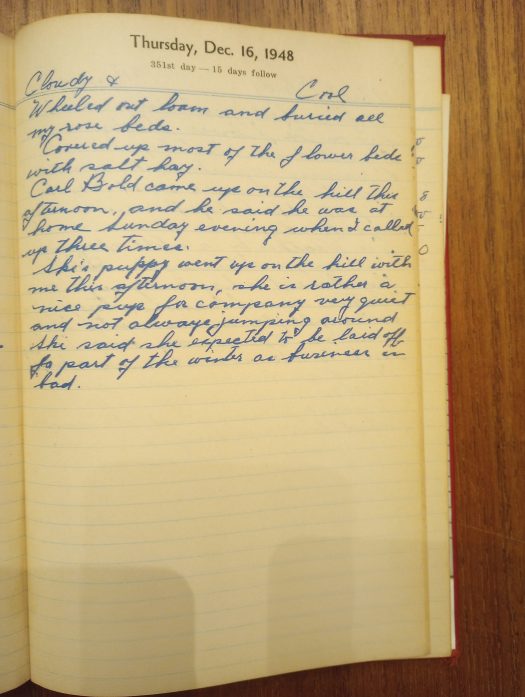 Thursday, Dec. 16, 1948
351st day — 15 days follow
Cloudy & Cool
Wheeled out loam and buried all
my rose beds.
Covered up most of the flower beds
with salt hay.
Carl Bold came up on the hill this
afternoon, and he said he was at
home Sunday evening when I called
up three times.
Ski's puppy went up on the hill with
me this afternoon, she is rather a
nice pup for company very quiet
and not always jumping around
Ski said she expected to be laid off
for part of the winter as business is
bad.